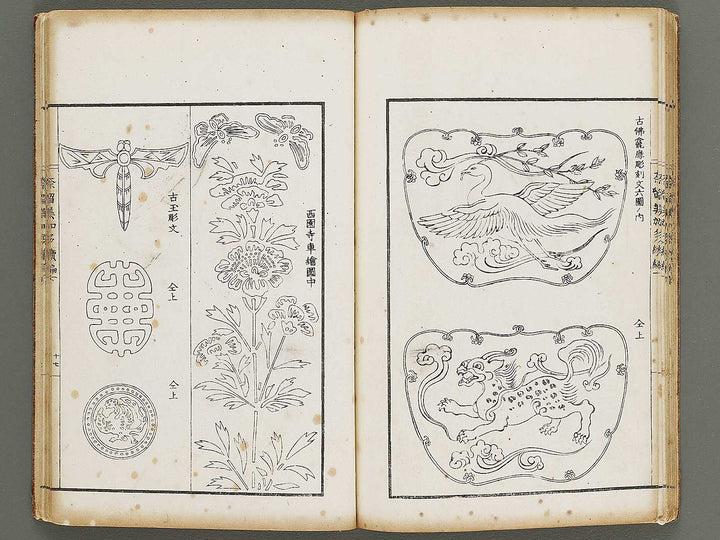 古佛龕廚彫刻文六圖ノ内
仝上
西園寺車繪圖中
古玉彫文
仝上
仝上
十七